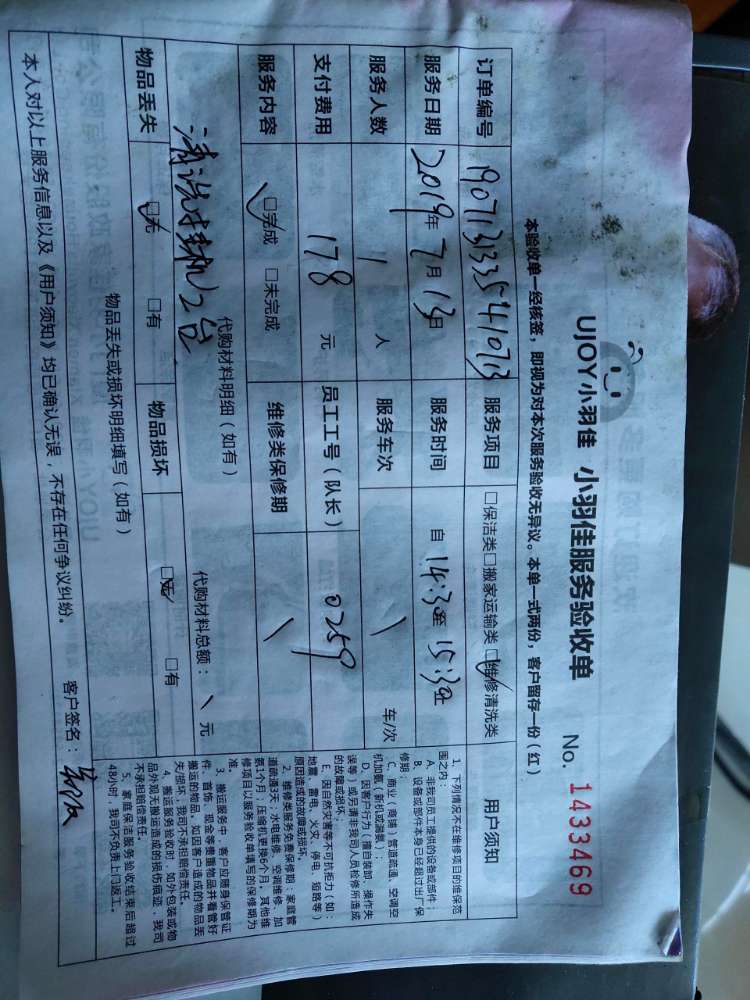 UJOY小羽佳 小羽佳服务验收单
No. 1433469
本验收单一经核签，即视为对本次服务验收无异议。本单一式两份，客户留存一份（红）
订单编号 190713133541073 服务项目 □保洁类 □搬家运输类 ☑维修清洗类
服务日期 2019年 7月 13日 服务时间 自 14:30至 15:30止
服务人数 1 人 服务车次 \ 车/次
支付费用 178 元 员工工号（队长） 0259
服务内容 ☑完成 □未完成 维修类保修期 \
代购材料明细（如有） 代购材料总额： \ 元
清洗挂机2台
物品丢失 ☑无 □有 物品损坏 ☑无 □有
物品丢失或损坏明细填写（如有）
本人对以上服务信息以及《用户须知》均已确认无误，不存在任何争议纠纷。 客户签名：
用户须知
1、下列情况不在维修项目的维保范
围之内：
A、非我司员工提供的设备或部件；
B、设备或部件本身已经超过出厂保
修期；
C、商业（商铺）管道疏通、空调空
机加氟（新机或漏氟）；
D、因客户行为（擅自装卸、操作失
误等）或另请非我司人员检修所造成
的故障或损坏；
E、因自然灾害等不可抗拒力（如：
地震、雷电、火灾、停电、短路等）
原因造成的故障或损坏。
2、维修类服务免费保修期：家庭管
道疏通3天，水电维修、空调维修、加
氟1个月；压缩机更换6个月，其他维
修项目以服务验收单填写的保修期为
准。
3、搬运服务中，客户应随身保管证
件、首饰、现金等贵重物品并看管好
搬运的物品，如因客户造成的物品丢
失/损坏，我司不承担赔偿责任。
4、搬运服务验收时，如外包装或物
品外观无搬运造成的损伤痕迹，我司
不承担赔偿责任。
5、家庭保洁服务验收结束后超过
48小时，我司不负责上门返工。